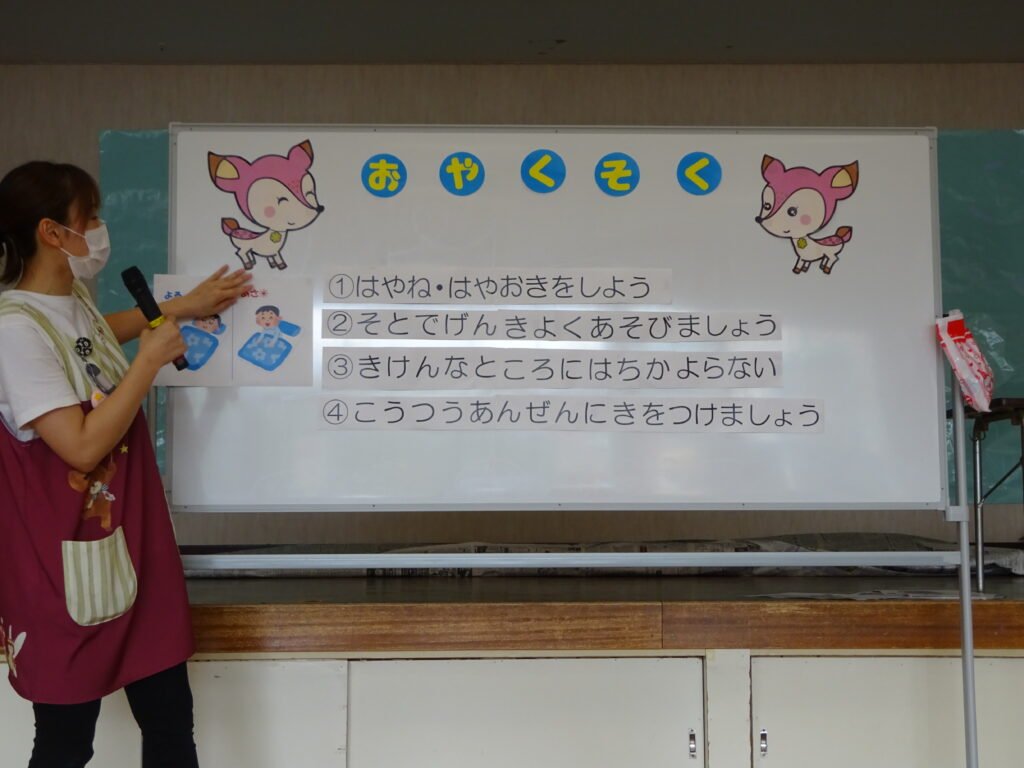 おやくそく
よる
あさ
①はやね・はやおきをしよう
②そとでげんきよくあそびましょう
③きけんなところにはちかよらない
④こうつうあんぜんにきをつけましょう